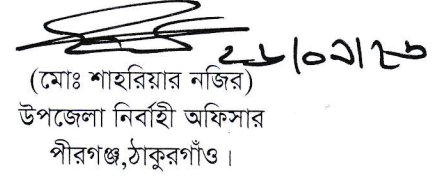 (মোঃ শাহরিয়ার নজির)
উপজেলা নির্বাহী অফিসার
পীরগঞ্জ,ঠাকুরগাঁও।